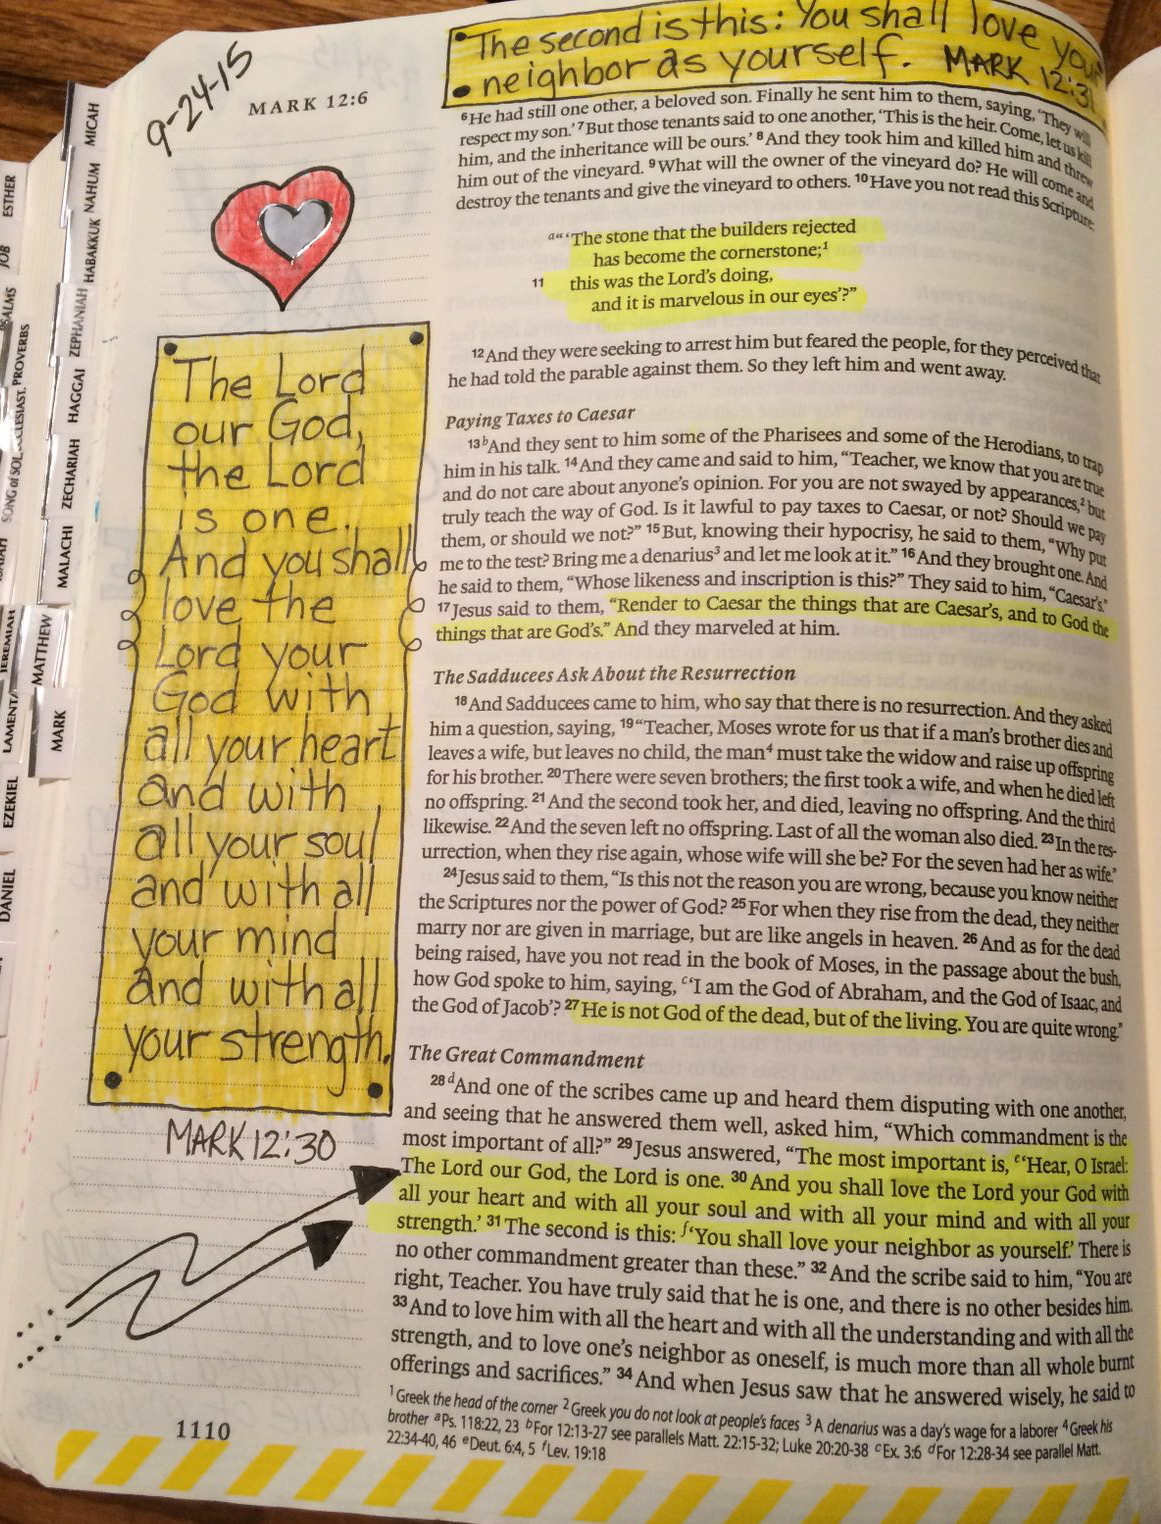 The second is this: You shall love your
neighbor as yourself. MARK 12:31
9-24-15
MARK 12:6
⁶He had still one other, a beloved son. Finally he sent him to them, saying, ‘They will
respect my son.’ ⁷But those tenants said to one another, ‘This is the heir. Come, let us kill
him, and the inheritance will be ours.’ ⁸And they took him and killed him and threw
him out of the vineyard. ⁹What will the owner of the vineyard do? He will come and
destroy the tenants and give the vineyard to others. ¹⁰Have you not read this Scripture:
a“‘The stone that the builders rejected
has become the cornerstone;¹
11 this was the Lord’s doing,
and it is marvelous in our eyes’?”
¹²And they were seeking to arrest him but feared the people, for they perceived that
he had told the parable against them. So they left him and went away.
Paying Taxes to Caesar
¹³ bAnd they sent to him some of the Pharisees and some of the Herodians, to trap
him in his talk. ¹⁴And they came and said to him, “Teacher, we know that you are true
and do not care about anyone’s opinion. For you are not swayed by appearances,² but
truly teach the way of God. Is it lawful to pay taxes to Caesar, or not? Should we pay
them, or should we not?” ¹⁵But, knowing their hypocrisy, he said to them, “Why put
me to the test? Bring me a denarius³ and let me look at it.” ¹⁶And they brought one. And
he said to them, “Whose likeness and inscription is this?” They said to him, “Caesar’s.”
¹⁷Jesus said to them, “Render to Caesar the things that are Caesar’s, and to God the
things that are God’s.” And they marveled at him.
The Sadducees Ask About the Resurrection
¹⁸And Sadducees came to him, who say that there is no resurrection. And they asked
him a question, saying, ¹⁹“Teacher, Moses wrote for us that if a man’s brother dies and
leaves a wife, but leaves no child, the man⁴ must take the widow and raise up offspring
for his brother. ²⁰There were seven brothers; the first took a wife, and when he died left
no offspring. ²¹And the second took her, and died, leaving no offspring. And the third
likewise. ²²And the seven left no offspring. Last of all the woman also died. ²³In the res-
urrection, when they rise again, whose wife will she be? For the seven had her as wife.”
²⁴Jesus said to them, “Is this not the reason you are wrong, because you know neither
the Scriptures nor the power of God? ²⁵For when they rise from the dead, they neither
marry nor are given in marriage, but are like angels in heaven. ²⁶And as for the dead
being raised, have you not read in the book of Moses, in the passage about the bush,
how God spoke to him, saying, c‘I am the God of Abraham, and the God of Isaac, and
the God of Jacob’? ²⁷He is not God of the dead, but of the living. You are quite wrong.”
The Great Commandment
²⁸ dAnd one of the scribes came up and heard them disputing with one another,
and seeing that he answered them well, asked him, “Which commandment is the
most important of all?” ²⁹Jesus answered, “The most important is, e‘Hear, O Israel:
The Lord our God, the Lord is one. ³⁰And you shall love the Lord your God with
all your heart and with all your soul and with all your mind and with all your
strength.’ ³¹The second is this: f‘You shall love your neighbor as yourself.’ There is
no other commandment greater than these.” ³²And the scribe said to him, “You are
right, Teacher. You have truly said that he is one, and there is no other besides him.
³³And to love him with all the heart and with all the understanding and with all the
strength, and to love one’s neighbor as oneself, is much more than all whole burnt
offerings and sacrifices.” ³⁴And when Jesus saw that he answered wisely, he said to
¹Greek the head of the corner ²Greek you do not look at people’s faces ³A denarius was a day’s wage for a laborer ⁴Greek his
brother aPs. 118:22, 23 bFor 12:13-27 see parallels Matt. 22:15-32; Luke 20:20-38 cEx. 3:6 dFor 12:28-34 see parallel Matt.
22:34-40, 46 eDeut. 6:4, 5 fLev. 19:18
The Lord
our God,
the Lord
is one.
And you shall
love the
Lord your
God with
all your heart
and with
all your soul
and with all
your mind
and with all
your strength.
MARK 12:30
1110
MICAH
NAHUM
HABAKKUK
ZEPHANIAH
HAGGAI
ZECHARIAH
MALACHI
MATTHEW
MARK
ESTHER
JOB
PROVERBS
SONG of SOL
JEREMIAH
EZEKIEL
DANIEL